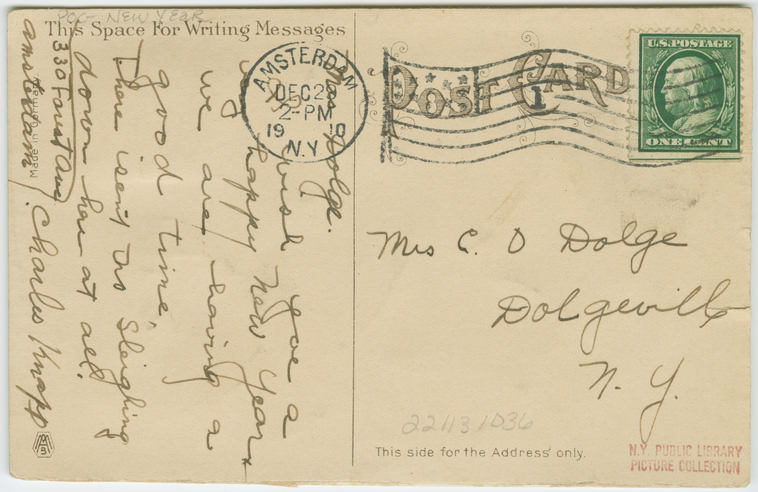 POC - NEW YEAR
This Space For Writing Messages
Mrs Dolge.
I wish you a
very happy New Year
we are having a
good time,
There isent no Sleighing
down here at all.
Charles Knapp
330 Forest Ave
amsterdam
Made in Germany
AMSTERDAM
DEC 28
2-PM
1910
N.Y.
POST CARD
1
U.S. POSTAGE
ONE CENT
Mrs C. O Dolge
Dolgeville
N. Y.
221131036
This side for the Address only.
N.Y. PUBLIC LIBRARY
PICTURE COLLECTION